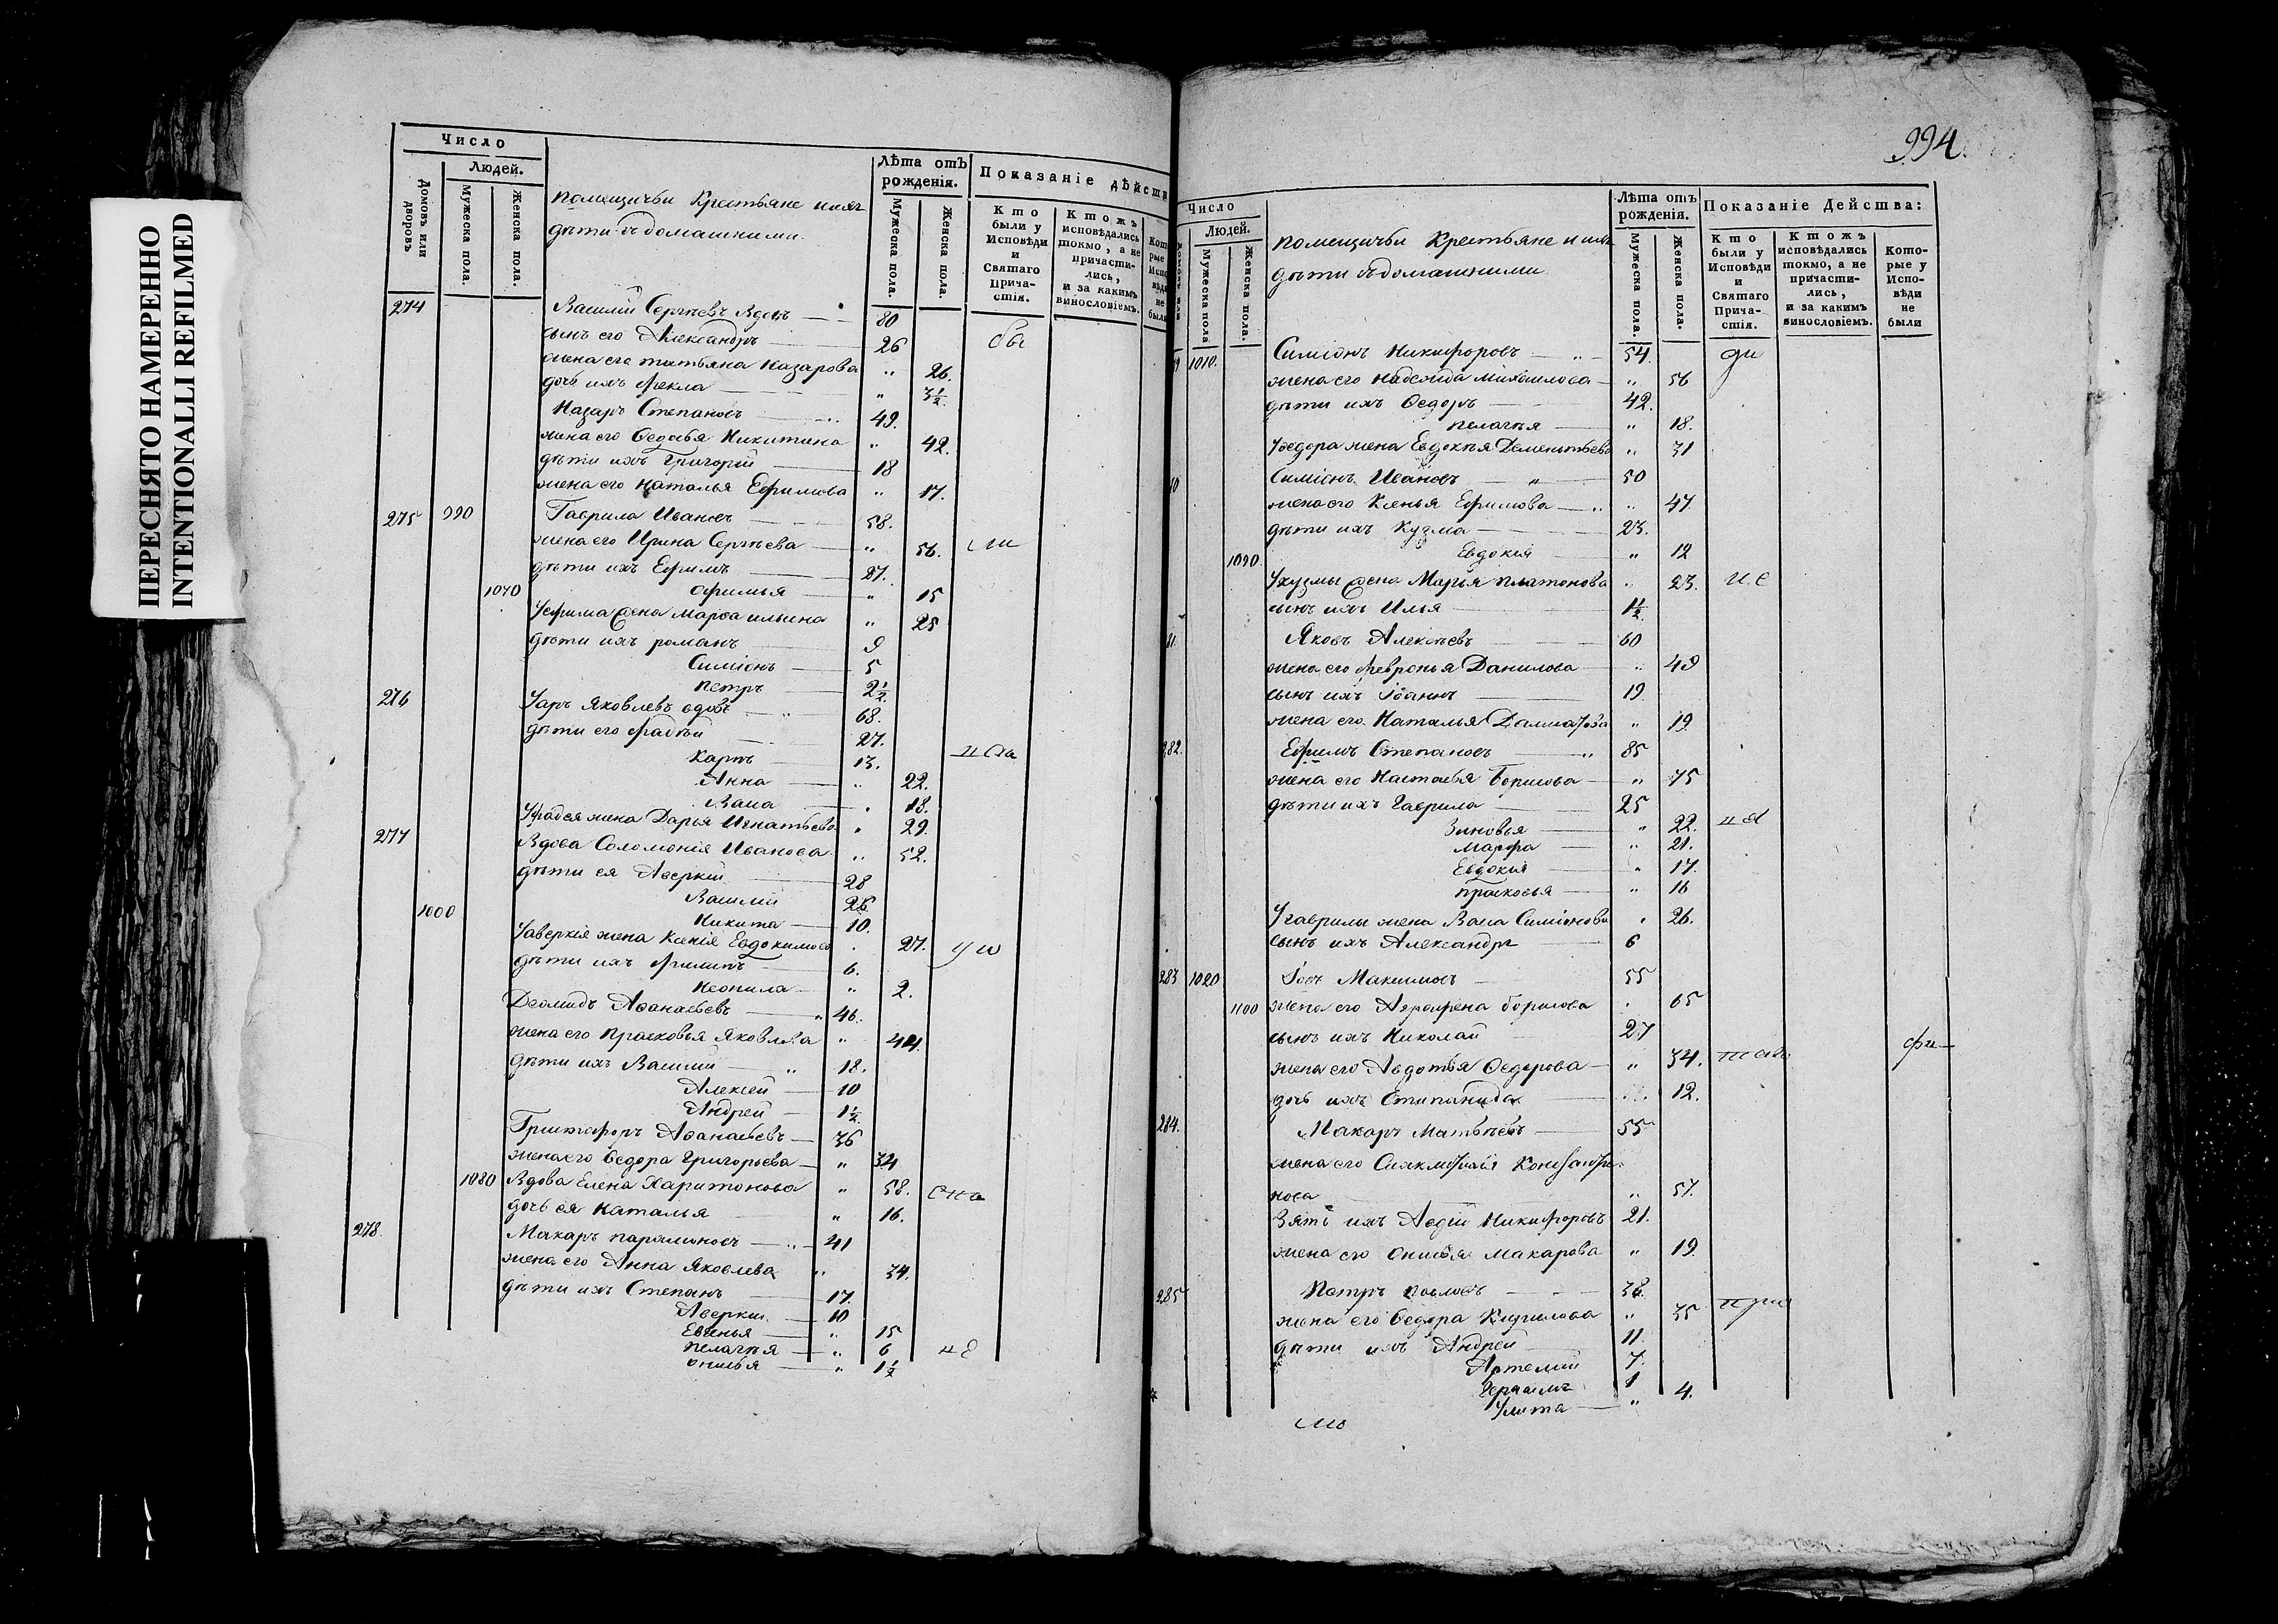 ПЕРЕСНЯТО НАМЕРЕННО
INTENTIONALLI REFILMED
Число
Людей.
Домовъ или дворовъ
Мужеска пола.
Женска пола.
помещичьи Крестьяне и ихъ
дѣти съ домашними.
Лѣта отъ рожденія.
Мужеска пола.
Женска пола.
Показаніе дѣйств
Кто были у Исповѣди и Святаго Причастія.
Ктожъ исповѣдались токмо, а не причастились, и за какимъ винословіемъ.
274 Василий Сергѣевъ вдовъ 80
сынъ его Александръ 26 бы
жена его татьяна Назарова " 26.
дочь ихъ Фекла " 3½
Назаръ Степановъ 49.
жена его Федосья Никитина " 42.
дѣти ихъ Григорій 18
жена его Наталья Ефимова " 17.
275 990 Гаврила Ивановъ 58.
жена его Ирина Сергѣева " 56. ли
дѣти ихъ Ефимъ 27.
1070 Офимья " 15
У ефима жена Марфа ильина " 25
дѣти ихъ романъ 9
Симіонъ 5
петръ 2½
276 Уаръ Яковлевъ вдовъ 68.
дѣти его Фадѣй 27.
Карпъ 13.
Анна " 22.
Васа " 18.
У фадея жена Дарья Игнатьева " 29.
277 Вдова Соломонія Иванова " 52.
дѣти ея Аверкій 28
Василий 26
1000 Никита 10.
У аверкія жена Ксенія Евдокимова " 27. у и
дѣти ихъ Филипъ 6.
Неонила " 2.
Деомидъ Афанасьевъ 46.
жена его Прасковья Яковлева " 44.
дѣти ихъ Василий 18.
Алексей 10
Андрей 1½
Афанасьевъ 36
жена его Федора Григорьева " 34
1080 Вдова Елена Харитонова " 58.
дочь ея Наталья " 16.
278. Макаръ парамоновъ 41
жена его Анна Яковлева " 34.
дѣти ихъ Степанъ 17.
Аверкий 10
Евгенья " 15
пелагѣя " 6
онисья " 1½
994.
Число
Людей.
Мужеска пола
Женска пола.
помещичьи Крестьяне и ихъ
дѣти съ домашними.
Лѣта отъ рожденія.
Мужеска пола.
Женска пола.
Показаніе Действа:
Кто были у Исповѣди и Святаго Причастія.
Ктожъ исповѣдались токмо, а не причастились, и за какимъ винословіемъ.
Которые у Исповѣди не были
1010. Симіонъ Никифоровъ 54.
жена его Надежда Михаилова " 56
дѣти ихъ Федоръ 42.
пелагѣя " 18.
У федора жена Евдокѣя Дементьева " 31
Симіонъ Ивановъ 50
жена его Ксенья Ефимова " 47
дѣти ихъ Кузма 23.
1090. Евдокія " 12
У кузмы жена Марья платонова " 23.
сынъ ихъ Илья 1½
81. Яковъ Алексѣевъ 60
жена его Февронья Данилова " 49
сынъ ихъ Іоаннъ 19
жена его Наталья " 19.
282. Ефимъ Степановъ 85
жена его Настасья Борисова " 75
дѣти ихъ Гаврила 25
Зиновья " 22.
Марфа " 21.
Евдокія " 17.
прасковья " 16
У гаврилы жена Васа Симіонова " 26.
сынъ ихъ Александръ 6
283 1020 Іовъ Максимовъ 55
1100 жена его Аграфена борисова " 65
сынъ ихъ Николай 27
жена его Авдотья Федорова " 34.
дочь ихъ Степанида 12.
284. Макаръ Матвѣевъ 55
нова " 57.
Зять ихъ Авдій Никифоровъ 21.
жена его Онисья Макарова " 19.
285 Петръ павловъ 38.
жена его Федора Кирилова " 35 при
дѣти ихъ Андрей 11.
Артемий 7.
Герасимъ 1
Улита " 4.